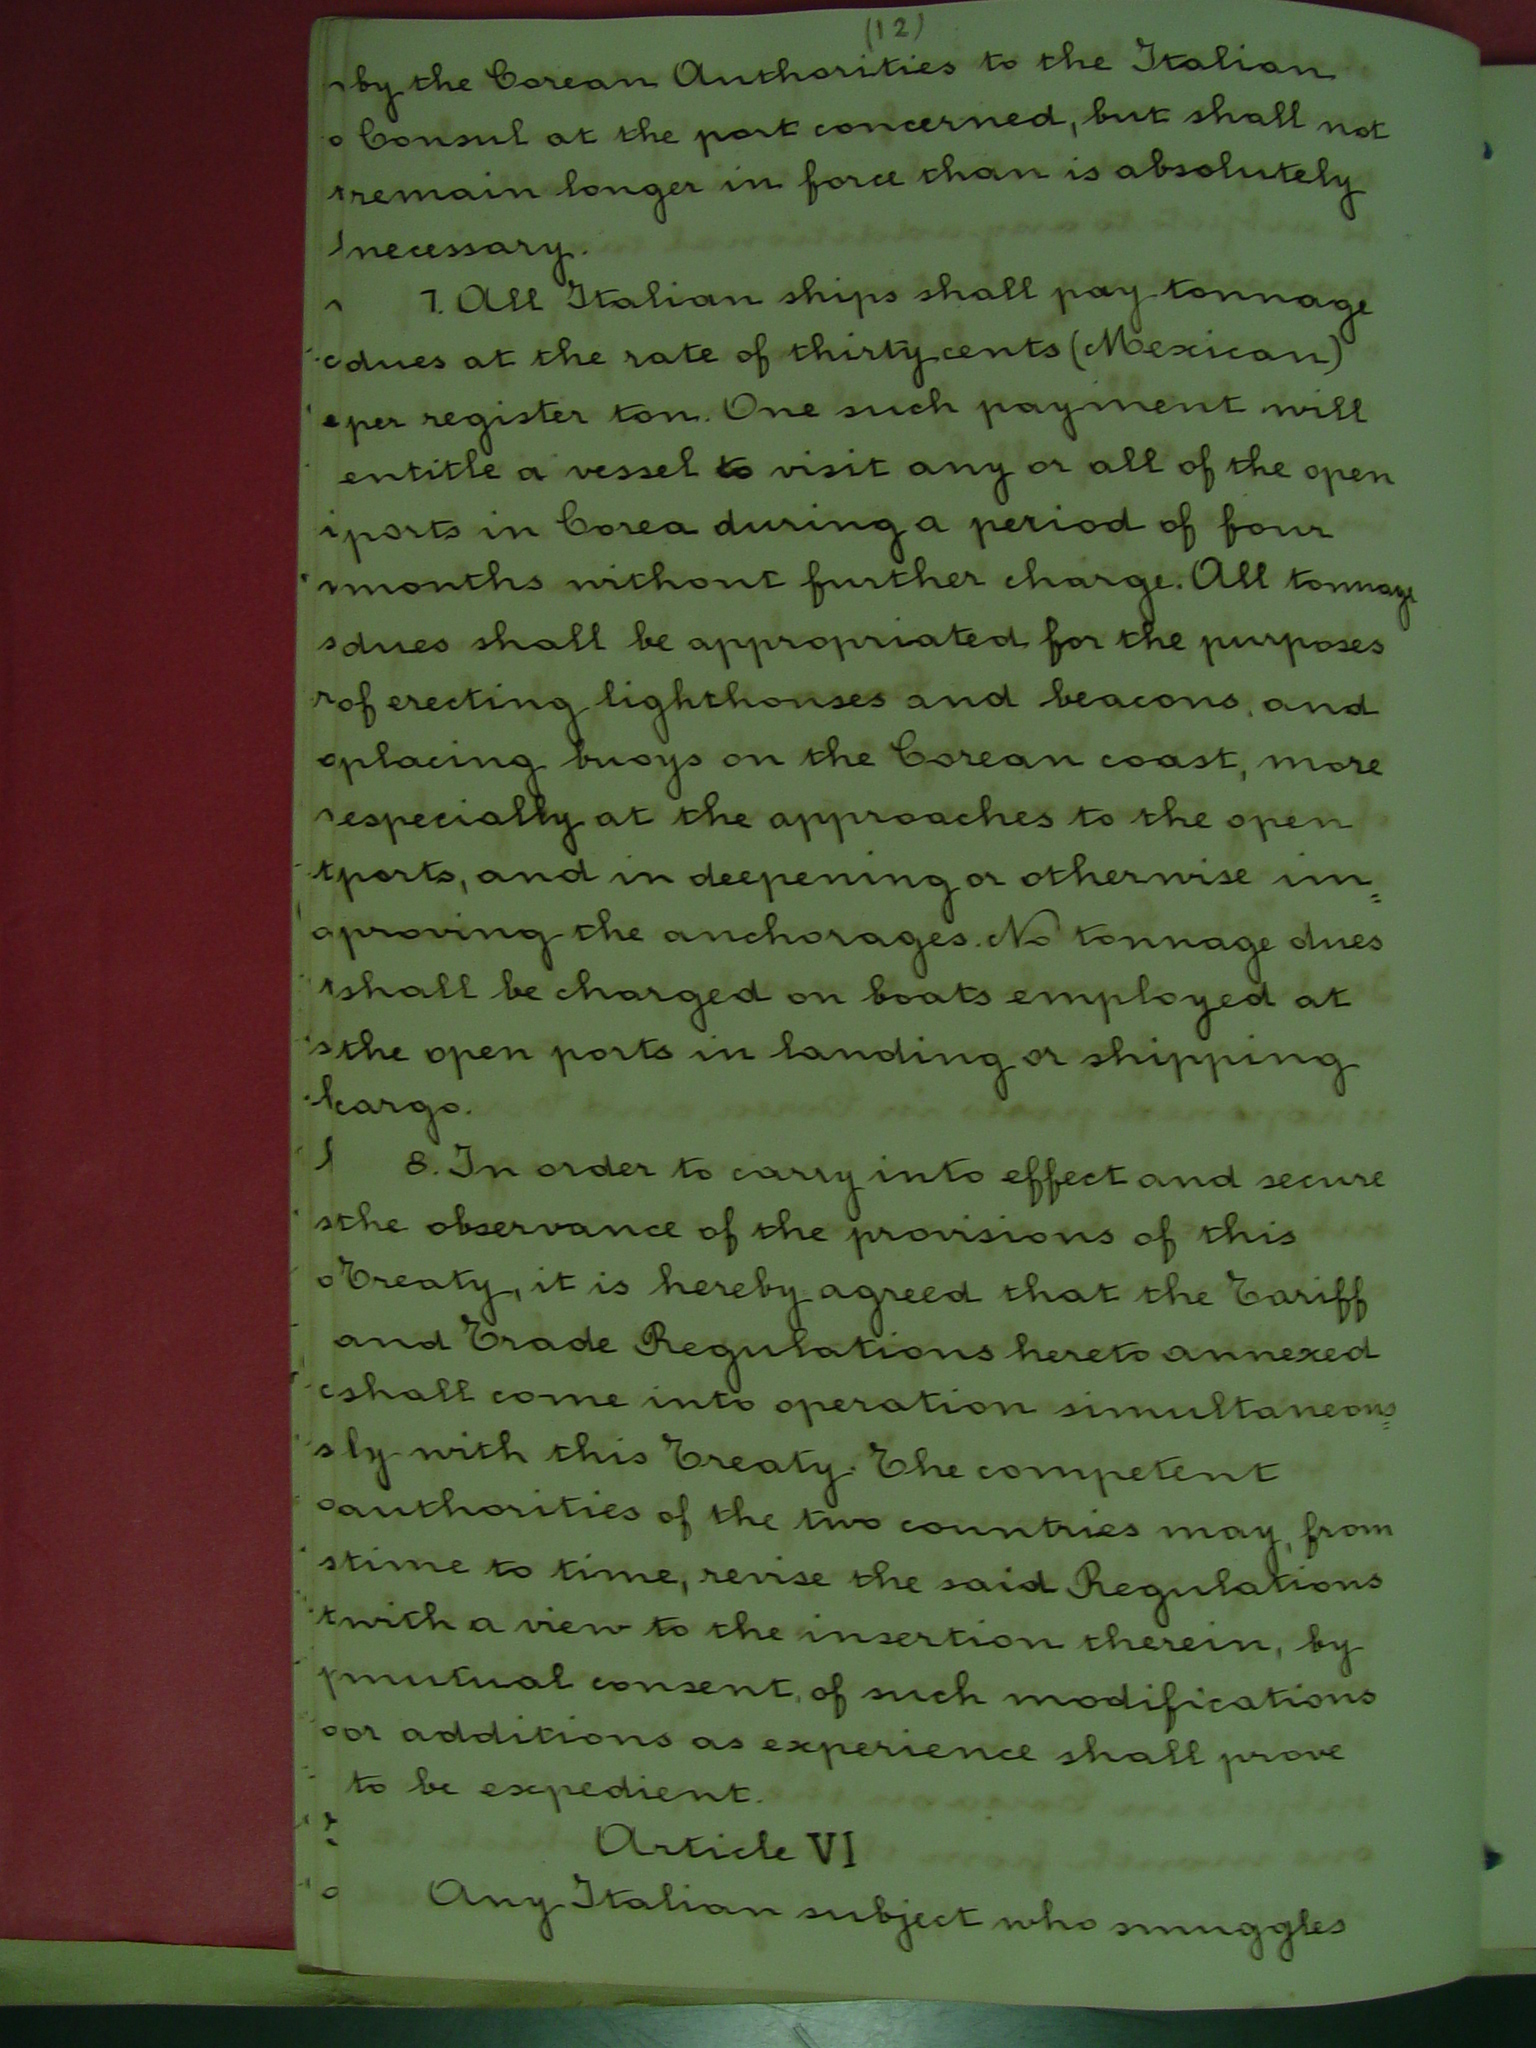 (12)
by the Corean Authorities to the Italian
Consul at the port concerned, but shall not
remain longer in force than is absolutely
necessary.
7. All Italian ships shall pay tonnage
dues at the rate of thirty cents (Mexican)
per register ton. One such payment will
entitle a vessel to visit any or all of the open
ports in Corea during a period of four
months without further charge. All tonnage
dues shall be appropriated for the purposes
of erecting lighthouses and beacons, and
placing buoys on the Corean coast, more
especially at the approaches to the open
ports, and in deepening or otherwise im=
proving the anchorages. No tonnage dues
shall be charged on boats employed at
the open ports in landing or shipping
cargo.
8. In order to carry into effect and secure
the observance of the provisions of this
Treaty, it is hereby agreed that the Tariff
and Trade Regulations hereto annexed
shall come into operation simultaneous=
ly with this Treaty. The competent
authorities of the two countries may, from
time to time, revise the said Regulations
with a view to the insertion therein, by
mutual consent, of such modifications
or additions as experience shall prove
to be expedient.
Article VI
Any Italian subject who smuggles